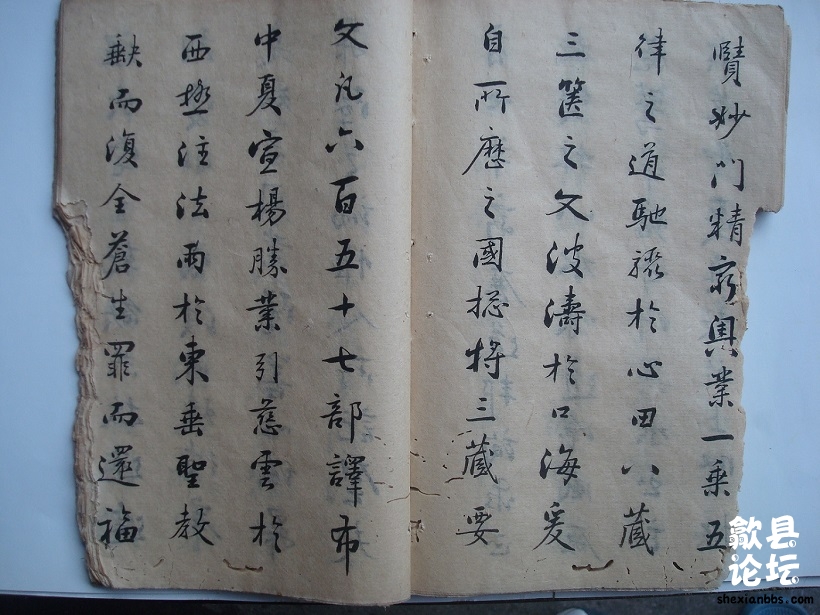 賾妙門精窮奧業一乘五
律之道馳驟於心田八藏
三篋之文波濤於口海爰
自所歷之國揔將三藏要
文凡六百五十七部譯布
中夏宣楊勝業引慈雲於
西極注法雨於東垂聖教
缺而復全蒼生罪而還福
歙县
论坛
shexianbbs.com